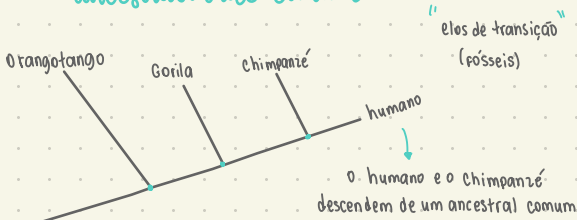 "elos de transição"
(fósseis)
Orangotango
Gorila
Chimpanzé
humano
o humano e o chimpanzé
descendem de um ancestral comum